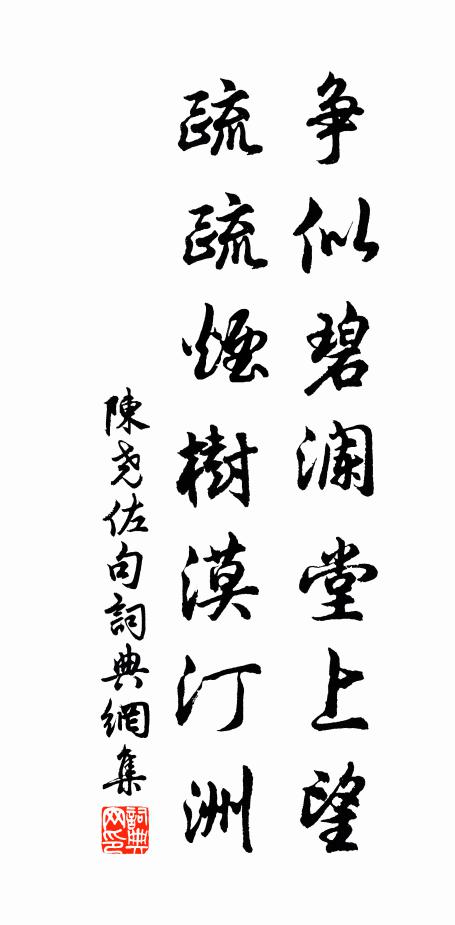 争似碧澜堂上望
疏疏煙樹漠汀洲
陳尧佐句詞典網集
詞典网印